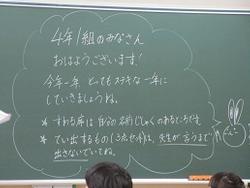 4年1組のみなさん
おはようございます!
今年一年 とってもステキな一年に
していきましょうね。
* すわる席は 自分の名前じゅんの あるところです。
* てい出するもの(3点セット)は、先生が言うまで
出さないでいてね。